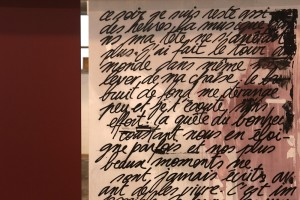 ce soir je suis resté assi
des heures, la musique
ma tête ne s'arrêtai
plus, j'ai fait le tour
monde sans même
lever de ma chaise. le
bruit de fond me dérange
peu et j'écoute sans
effort. la quête du bonheu
constant nous en éloi-
gne parfois et nos plus
beaux moments ne
sont jamais écrits av-
ant de les vivre. C'est im